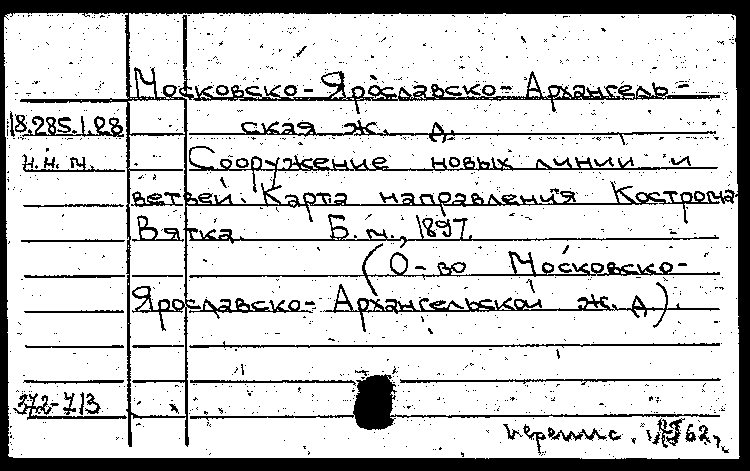 Московско-Ярославско-Архангель-
18.285.1.28 ская ж. д.
н.н.м. Сооружение новых линии и
ветвей. Карта направления Кострома
Вятка. Б.м., 1897.
(О-во Московско-
Ярославско-Архангельской ж. д.).
372-713
перепис. 62 г.